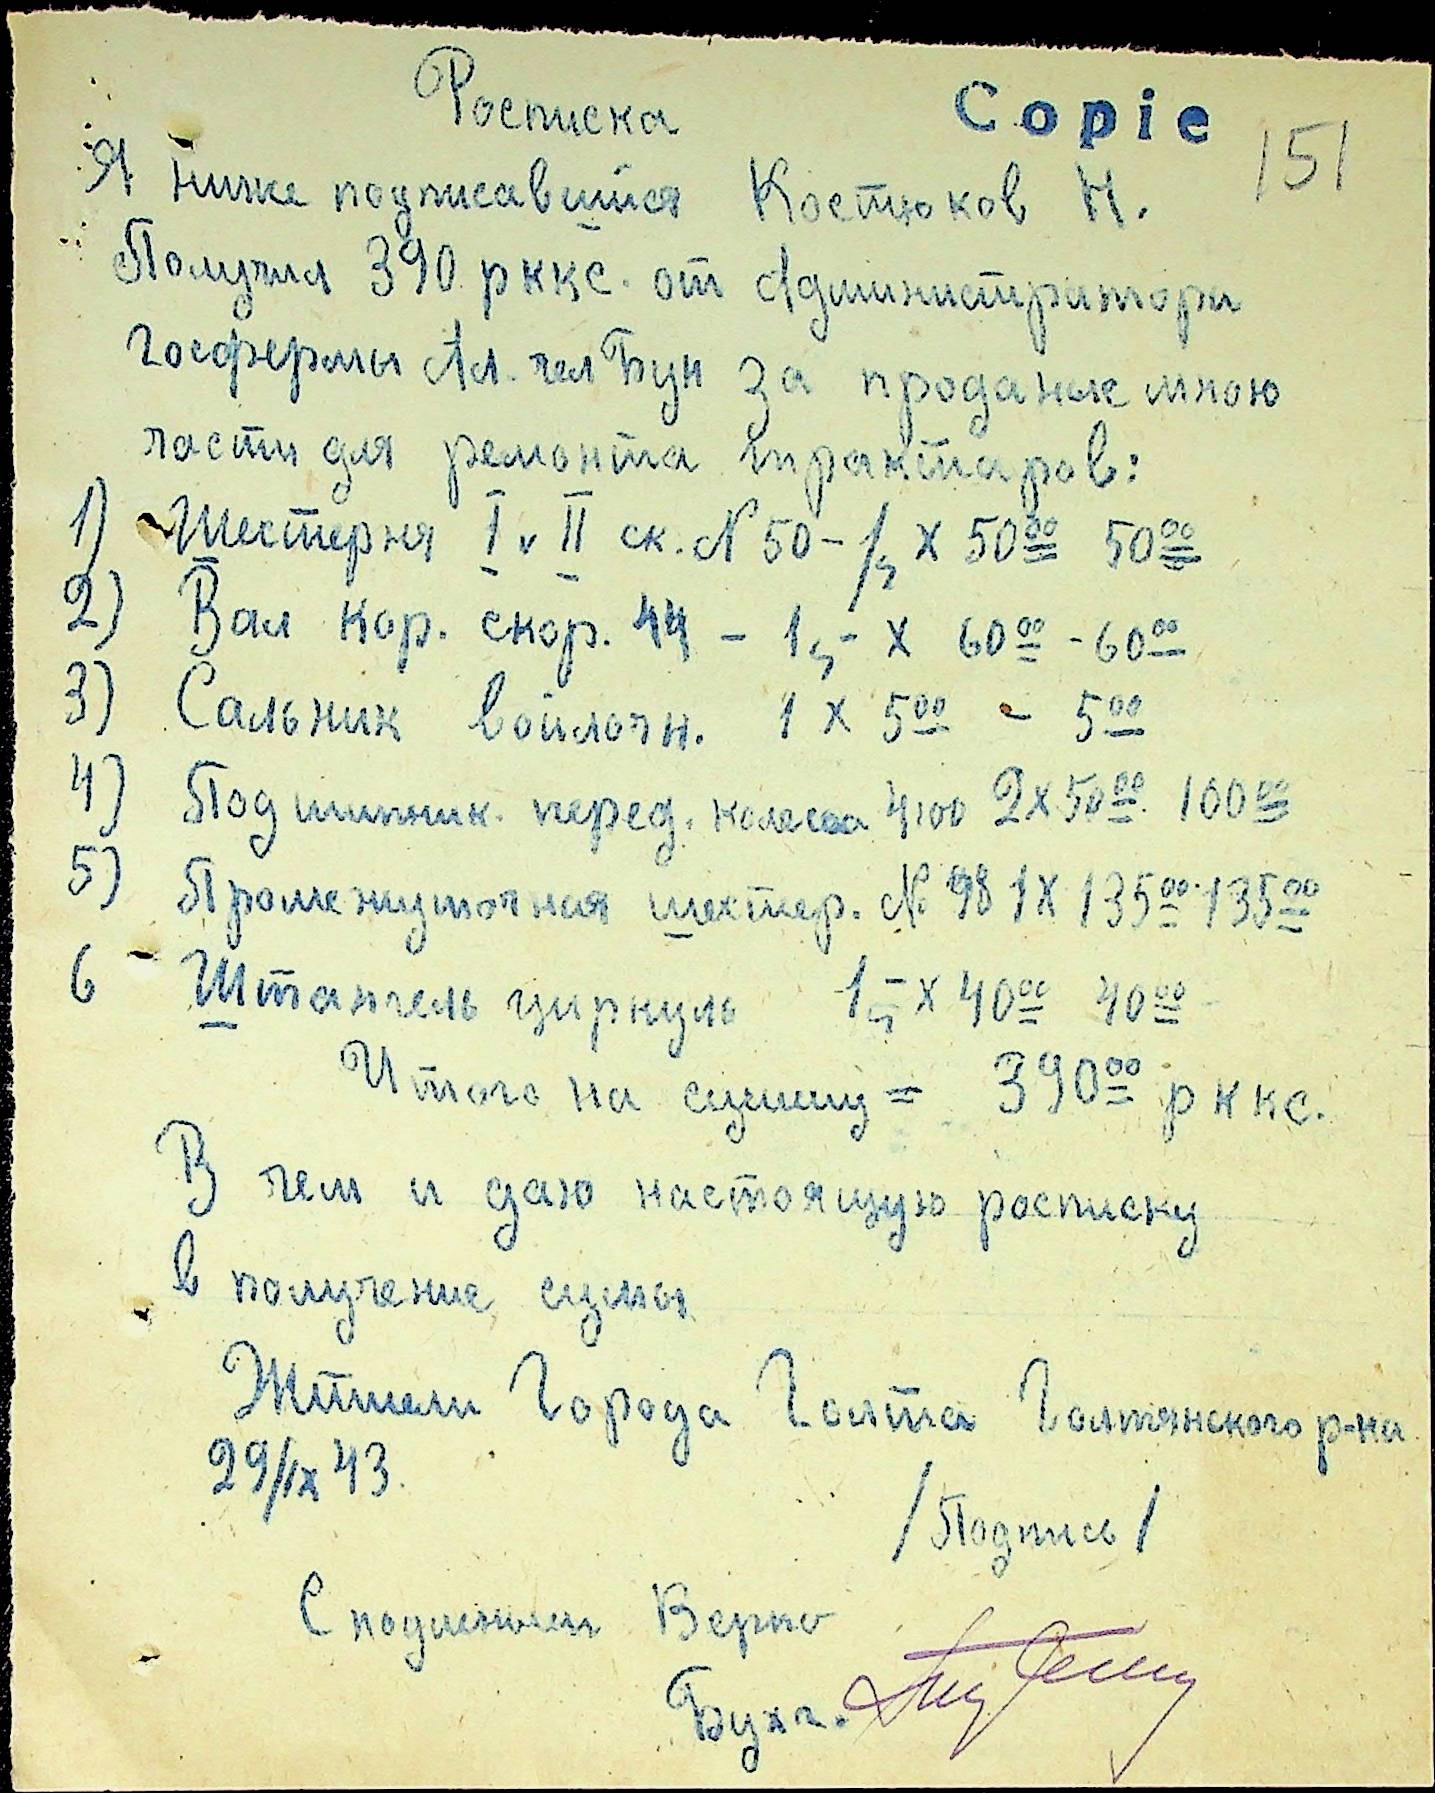 Росписка
Copie
151
Я ниже подписавшися Костюков Н.
Получил 390 рккс. от Администратора
Госфермы Ал. чел Бун за проданые мною
части для ремонта трактаров:
1) Шестерня I и II ск. № 50 - 1 х 50 00 50 00
2) Вал кор. скор. 44 - 1 - х 60 00 - 60 00
3) Сальник войлочн. 1 х 5 00 - 5 00
4) Подшипник. перед. колеса 4100 2 х 50 00 100 00
5) Промежуточная шестер. № 98 1 х 135 00 135 00
6 Штангель циркуль 1 х 40 00 40 00
Итого на сумму = 390 00 рккс.
В чем и даю настоящую росписку
в получение сумы
Жители Города Голта Голтянского р-на
29/IX 43.
/Подпись/
С подленым Верно
Бухг.